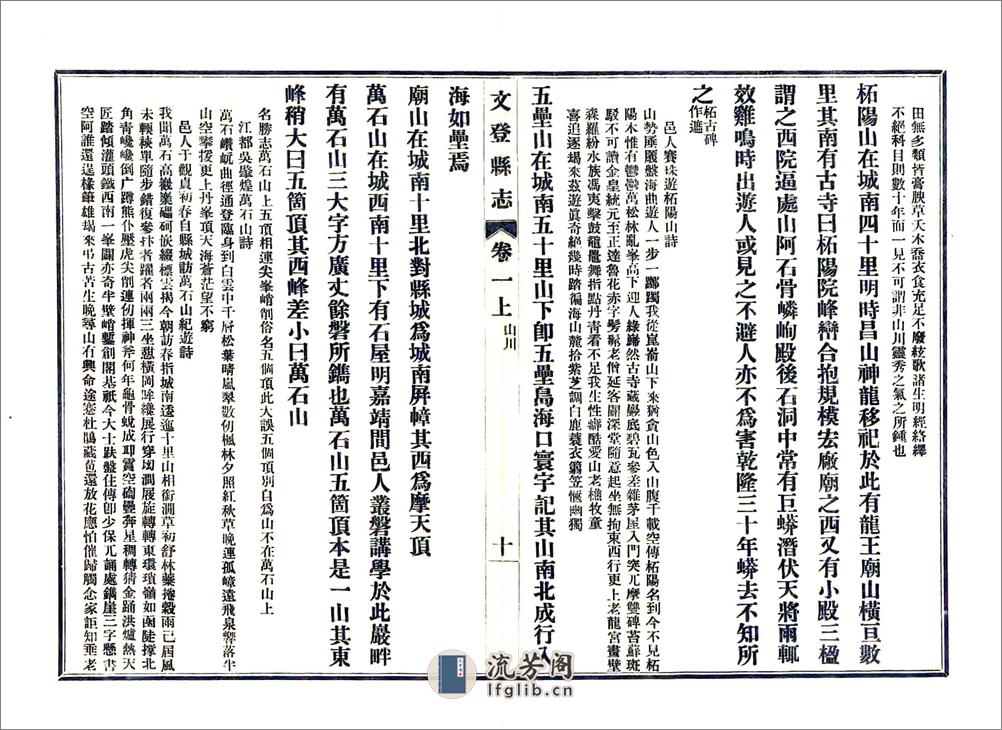 田無多類皆膏腴草天木喬衣食充足不廢絃歌諸生明經絡繹
不絕科目則數十年而一見不可謂非山川靈秀之氣之所鍾也
柘陽山在城南四十里明時昌山神龍移祀於此有龍王廟山橫亘數
里其南有古寺曰柘陽院峰巒合抱規模宏廠廟之西又有小殿三楹
謂之西院逼處山阿石骨嶙峋殿後石洞中常有巨蟒潛伏天將雨輒
效雞鳴時出遊人或見之不避人亦不爲害乾隆三十年蟒去不知所
之柘古碑作𨗿
邑人賽珠遊柘陽山詩
山勢巃嵸盤海曲遊人一步一躑躅我從崑崳山下來猶貪山色入山腹千載空傳柘陽名到今不見柘
陽木惟有鬱鬱萬松林亂峯高下迎人綠繞然古寺藏巖底碧瓦參差雜茅屋入門突兀摩雙碑苔蘚斑
駁不可讀金皇統元至正達魯花赤字鬅鬙老僧延客闢深堂隨意起坐無拘束西行更上老龍宮畫壁
森羅紛水族馮夷擊鼓黿鼉舞指點丹青看不足我生性癖酷愛山老樵牧童
喜追逐朅來茲遊眞奇絕幾時踏徧海山麓拾紫芝調白鹿蓑衣篛笠愜幽獨
五壘山在城南五十里山下卽五壘島海口寰宇記其山南北成行入
文登縣志
卷一上
山川
十
海如壘焉
廟山在城南十里北對縣城爲城南屏嶂其西爲摩天頂
萬石山在城西南十里下有石屋明嘉靖間邑人叢磐講學於此巖畔
有萬石山三大字方廣丈餘磐所鐫也萬石山五箇頂本是一山其東
峰稍大曰五箇頂其西峰差小曰萬石山
名勝志萬石山上五頂相連尖峯峭削俗名五個頂此大誤五個頂別自爲山不在萬石山上
江都吳肇煌萬石山詩
萬石巑岏曲徑通登臨身到白雲中千層松葉晴嵐翠數仞楓林夕照紅秋草晚連孤嶂遠飛泉響落半
山空攀援更上丹峯頂天海蒼茫望不窮
邑人于觀貞初春自縣城訪萬石山紀遊詩
我聞萬石高巀嶪礧砢嵌綴標雲揭今朝訪春指城南逶迤十里山相銜澗草初舒林蘡捲榖雨已屆風
未輭袂單隨步錯復參抃者躍者兩兩三坐憩橫岡眸纔展行穿㘭澗屐旋轉轉東環瑣嶺如函陡撐北
角靑巉巉倒广蹲熊仆壓虎尖削連仞揮神斧何年龜骨蛻成
空阿誰還送椽筆雄朅來弔古苦生晚尋山有興命途蹇杜鵑藏苞還放花應怕催歸觸念家詎知垂老
流芳阁
lfglib.cn